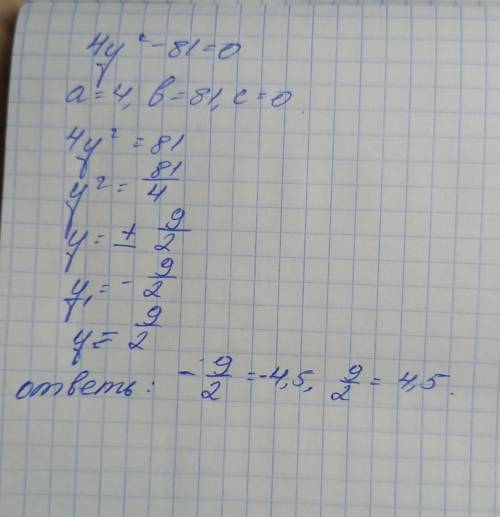 4y² - 81 = 0
a = 4, b = 81, c = 0
4y² = 81
y² = 81/4
y = ± 9/2
y₁ = - 9/2
y = 9/2
ответь: - 9/2 = -4,5, 9/2 = 4,5.